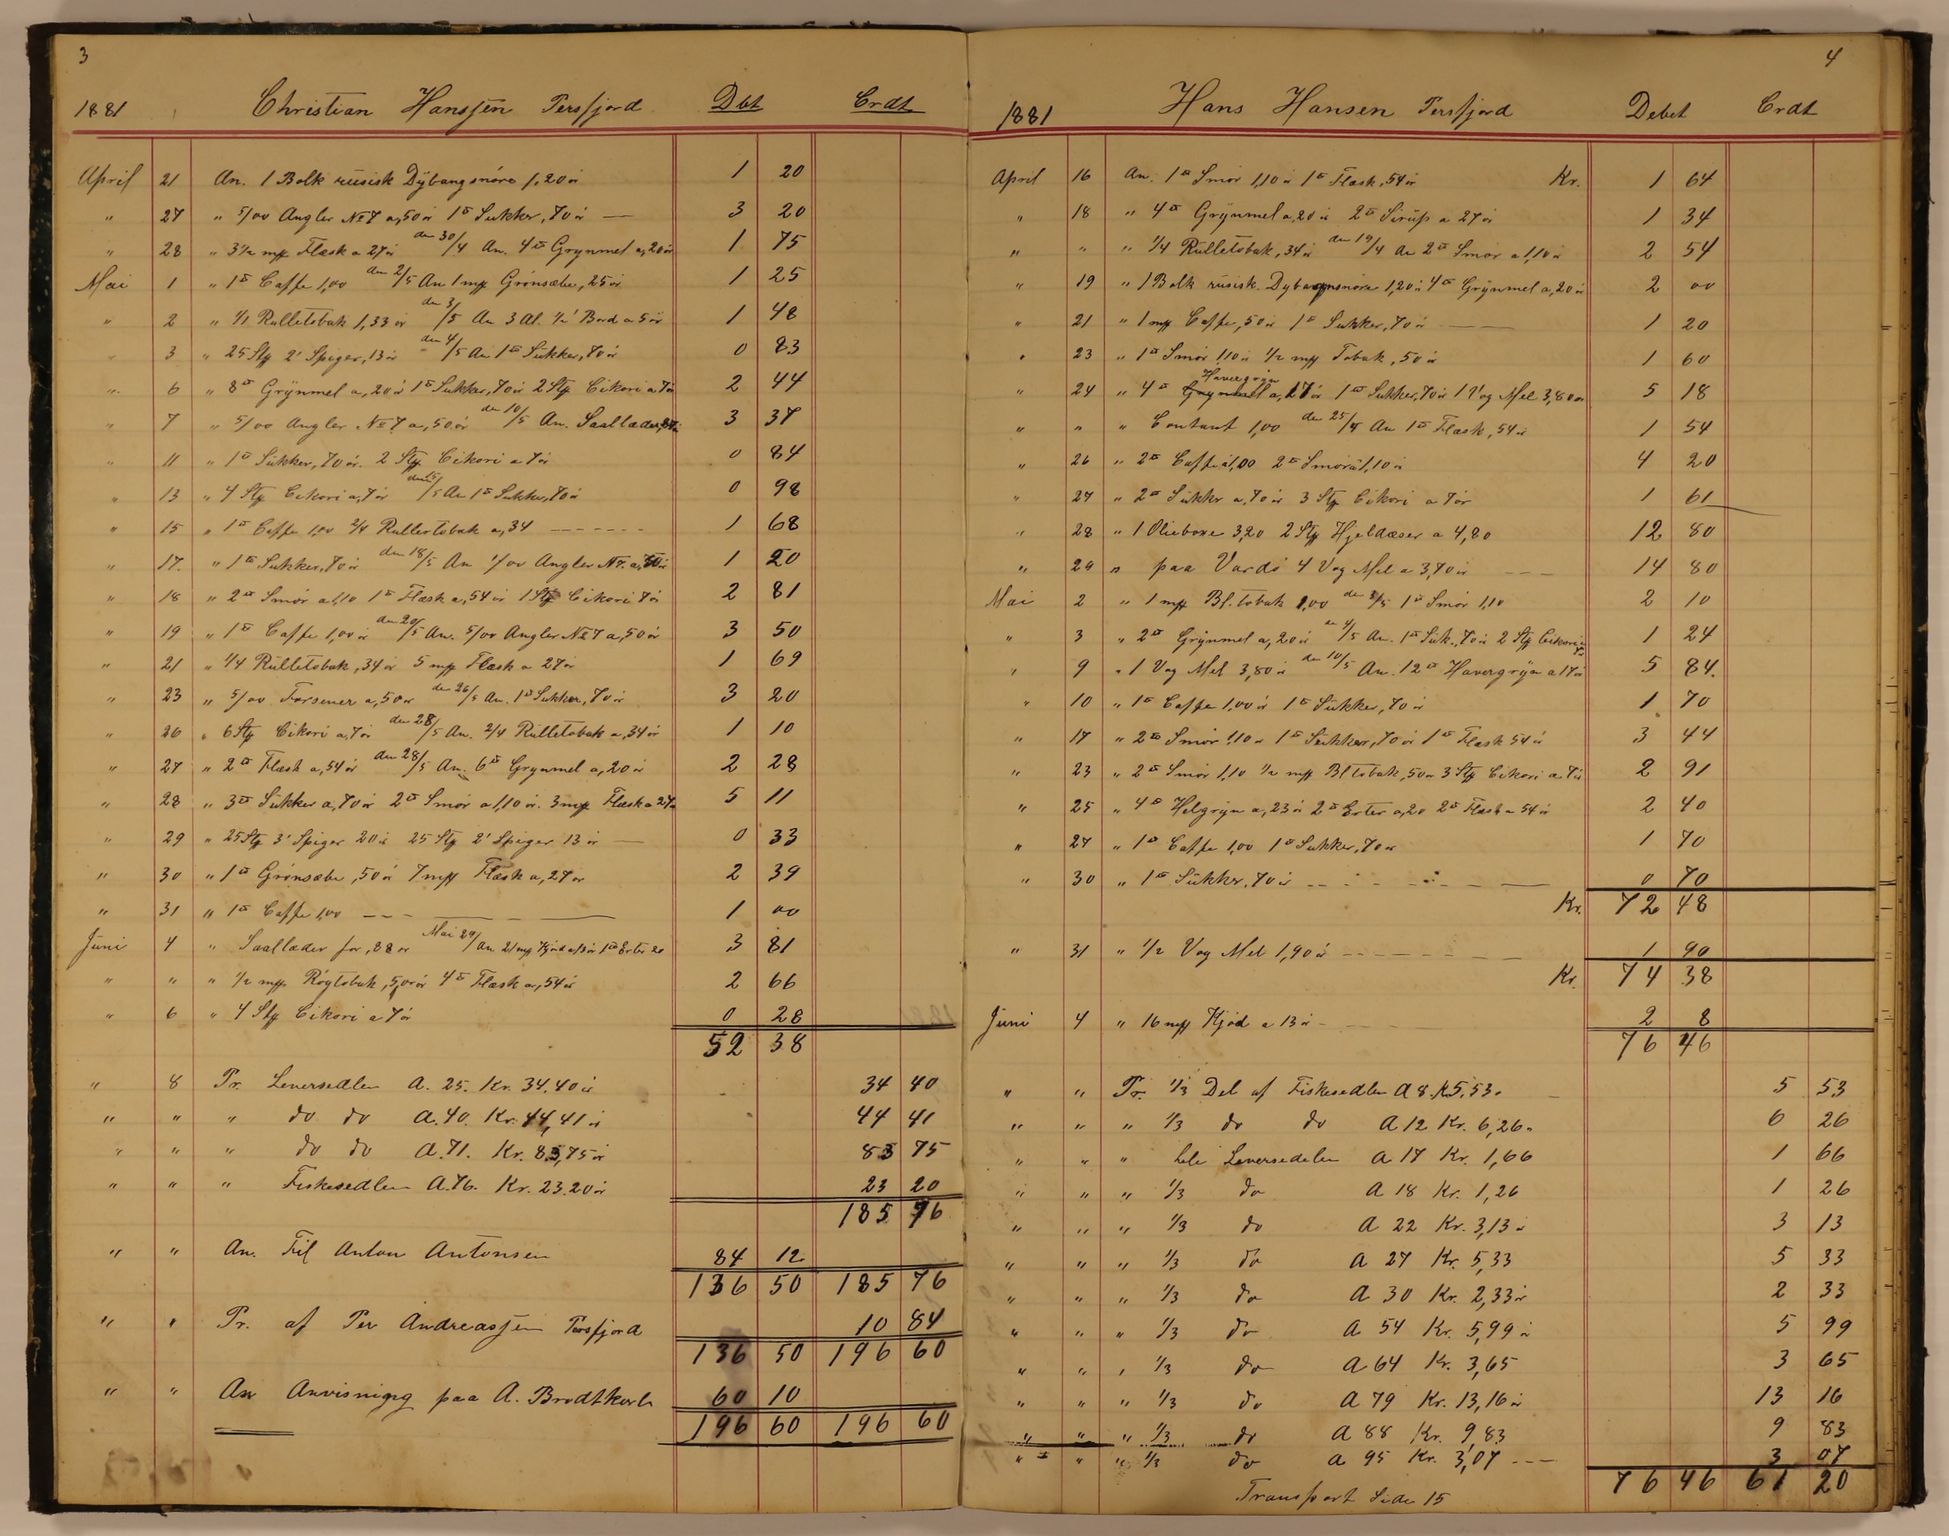 3
1881 Christian Hanssen Persfjord Dbt Crdt
April 21 An. 1 Bolk rusisk Dÿbangsnöre 1,20 ör 1 20
" 27 " 5/00 Angler No 7 a,50 ör 1 ℔ Sukker,70 ör 3 20
" 28 " 3½ mp Flæsk a 27 ör den 30/4 An. 4 ℔ Grynmel a,20 ör 1 75
Mai 1 " 1 ℔ Caffe 1,00 den 2/5 An 1 mp Grönsæbe,25 ör 1 25
" 2 " 1/1 Rulletobak 1,33 ör den 3/5 An 3 Al. ½' Bord a 5 ör 1 48
" 3 " 25 Stÿ 2' Spiger,13 ör den 4/5 An 1 ℔ Sukker,70 ör 0 83
" 6 " 8 ℔ Grÿnmel a,20 ör 1 ℔ Sukker,70 ör 2 Stÿ Cikori a 7 ör 2 44
" 7 " 5/00 Angler No 7 a,50 ör den 10/5 An. Saallæder,87 ör 3 37
" 11 " 1 ℔ Sukker,70 ör. 2 Stÿ Cikori a 7 ör 0 84
" 13 " 4 Stÿ Cikori a,7 ör den /5 An 1 ℔ Sukker,70 ör 0 98
" 15 " 1 ℔ Caffe 1,00 2/4 Rulletobak a,34 1 68
" 17. " 1 ℔ Sukker,70 ör den 18/5 An 1/00 Angler N 7. a,50 ör 1 20
" 18 " 2 ℔ Smör a 1,10 1 ℔ Flæsk a,54 ör 1 Stÿ Cikori 7 ör 2 81
" 19 " 1 ℔ Caffe 1,00 ör den 20/5 An. 5/00 Angler No 7 a,50 ör 3 50
" 21 " 1/4 Rulletobak,34 ör 5 mp Flæsk a 27 ör 1 69
" 23 " 5/00 Forsener a,50 ör den 26/5 An. 1 ℔ Sukker,70 ör 3 20
" 26 " 6 Stÿ Cikori a,7 ör den 28/5 An. 2/4 Rulletobak a,34 ör 1 10
" 27 " 2 ℔ Flæsk a,54 ör den 28/5 An. 6 ℔ Grynmel a,20 ör 2 28
" 28 " 3 ℔ Sukker a,70 ör 2 ℔ Smör a 1,10 ör. 3 mp Flæsk a 27 ör 5 11
" 29 " 25 Stÿ 3' Spiger 20 ör 25 Stÿ 2' Spiger 13 ör 0 33
" 30 " 1 ℔ Grönsæbe,50 ör 7 mp Flæsk a,27 ör 2 39
" 31 " 1 ℔ Caffe 1,00 1 00
Juni 4 " Saallæder for,88 ör Mai 29/ An. 21 mp Kjöd a 13 ör 1 ℔ Erter 20 3 81
" " " ½ mp. Rögtobak,50 ör 4 ℔ Flæsk a,54 ör 2 66
" 6 " 4 Stÿ Cikori a 7 ör 0 28
52 38
" 8 Pr. Leversedlen A. 25. Kr. 34.40 ör 34 40
" " " do do A. 40. Kr. 44,41 ör 44 41
" " " do do A. 71. Kr. 83,75 ör 83 75
" " " Fiskesedlen A. 76. Kr. 23.20 ör 23 20
185 76
" " An. Til Anton Antonsen 84 12
136 50 185 76
" " Pr. af Per Andreassen Persfjord 10 84
136 50 196 60
" " An Anvisning paa A. Brodtkorb 60 10
196 60 196 60
4
1881 Hans Hansen Persfjord Debet Crdt
April 16 An. 1 ℔ Smör 1,10 ör 1 ℔ Flæsk,54 ör Kr. 1 64
" 18 " 4 ℔ Grÿnmel a,20 ör 2 ℔ Sirup a 27 ör 1 34
" " " 1/4 Rulletobak,34 ör den 19/4 An 2 ℔ Smör a 1,10 ör 2 54
" 19 " 1 Bolk rusisk Dybangsnöre 1,20 ör 4 ℔ Grÿnmel a,20 ör 2 00
" 21 " 1 mp Caffe,50 ör 1 ℔ Sukker,70 ör 1 20
" 23 " 1 ℔ Smör 1,10 ör ½ mp Tobak,50 ör 1 60
" 24 " 4 ℔ Grynmel Havregrÿn a,17 ör 1 ℔ Sukker,70 ör 1 Vog Mel 3,80 ör 5 18
" " " Contant 1,00 den 25/4 An 1 ℔ Flæsk,54 ör 1 54
" 26 " 2 ℔ Caffe á 1,00 2 ℔ Smör á 1,10 ör 4 20
" 27 " 2 ℔ Sukker a,70 ör 3 Stÿ Cikori a 7 ör 1 61
" 28 " 1 Olieboxe 3,20 2 Stÿ Hjeldæser a 4,80 12 80
" 29 " paa Vardö 4 Vog Mel a 3,70 ör 14 80
Mai 2 " 1 mp Bl. tobak 1,00 den 3/5 1 ℔ Smör 1,10 2 10
" 3 " 2 ℔ Grÿnmel a,20 ör den 4/5 An. 1 ℔ Suk.,70 ör 2 Stÿ Cikori 1 24
" 9 " 1 Vog Mel 3,80 ör den 10/5 An. 12 ℔ Havergrÿn a 17 ör 5 84.
" 10 " 1 ℔ Caffe 1,00 ör 1 ℔ Sukker,70 ör 1 70
" 17 " 2 ℔ Smör 1,10 ör 1 ℔ Sukker,70 ör 1 ℔ Flæsk 54 ör 3 44
" 23 " 2 ℔ Smör 1,10 ½ mp Bl tobak,50 ör 3 Stÿ Cikori a 7 ör 2 91
" 25 " 4 ℔ Helgryn a,23 ör 2 ℔ Erter a,20 2 ℔ Flæsk a 54 ör 2 40
" 27 " 1 ℔ Caffe 1,00 1 ℔ Sukker,70 ör 1 70
" 30 " 1 ℔ Sukker,70 ör 0 70
Kr. 72 48
" 31 " ½ Vog Mel 1,90 ör 1 90
Kr. 74 38
Juni 4 " 16 mp Kjöd a 13 ör 2 8
76 46
" " Pr. 1/3 Del af Fiskesedlen A 8. K 5,53. 5 53
" " " 1/3 do do A 12 Kr. 6,26. 6 26
" " " hele Leversedelen A 17 Kr. 1,66 1 66
" " " 1/3 do A 18 Kr. 1,26 1 26
" " " 1/3 do A 22 Kr. 3,13 ör 3 13
" " " 1/3 do A 27 Kr. 5,33 5 33
" " " 1/3 do A 30 Kr. 2,33 ör 2 33
" " " 1/3 do A 54 Kr. 5,99 ör 5 99
" " " 1/3 do A 64 Kr. 3,65 3 65
" " " 1/3 do A 79 Kr. 13,16 ör 13 16
" " " 1/3 do A 88 Kr. 9,83 9 83
" " " 1/3 do A 95 Kr. 3,07 3 07
Transport Side 15 76 46 61 20